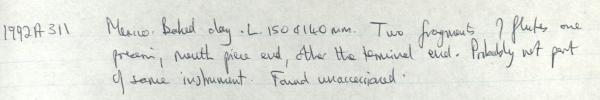 1992A311 Mexico. Baked clay. L. 150 & 140 mm. Two fragments of flutes one
proximi, mouth piece end, other the terminal end. Probably not part
of same instrument. Found unaccessioned.